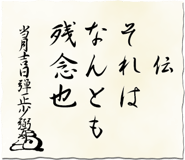 伝
それは
なんとも
残念也
当月吉日弾正少弼